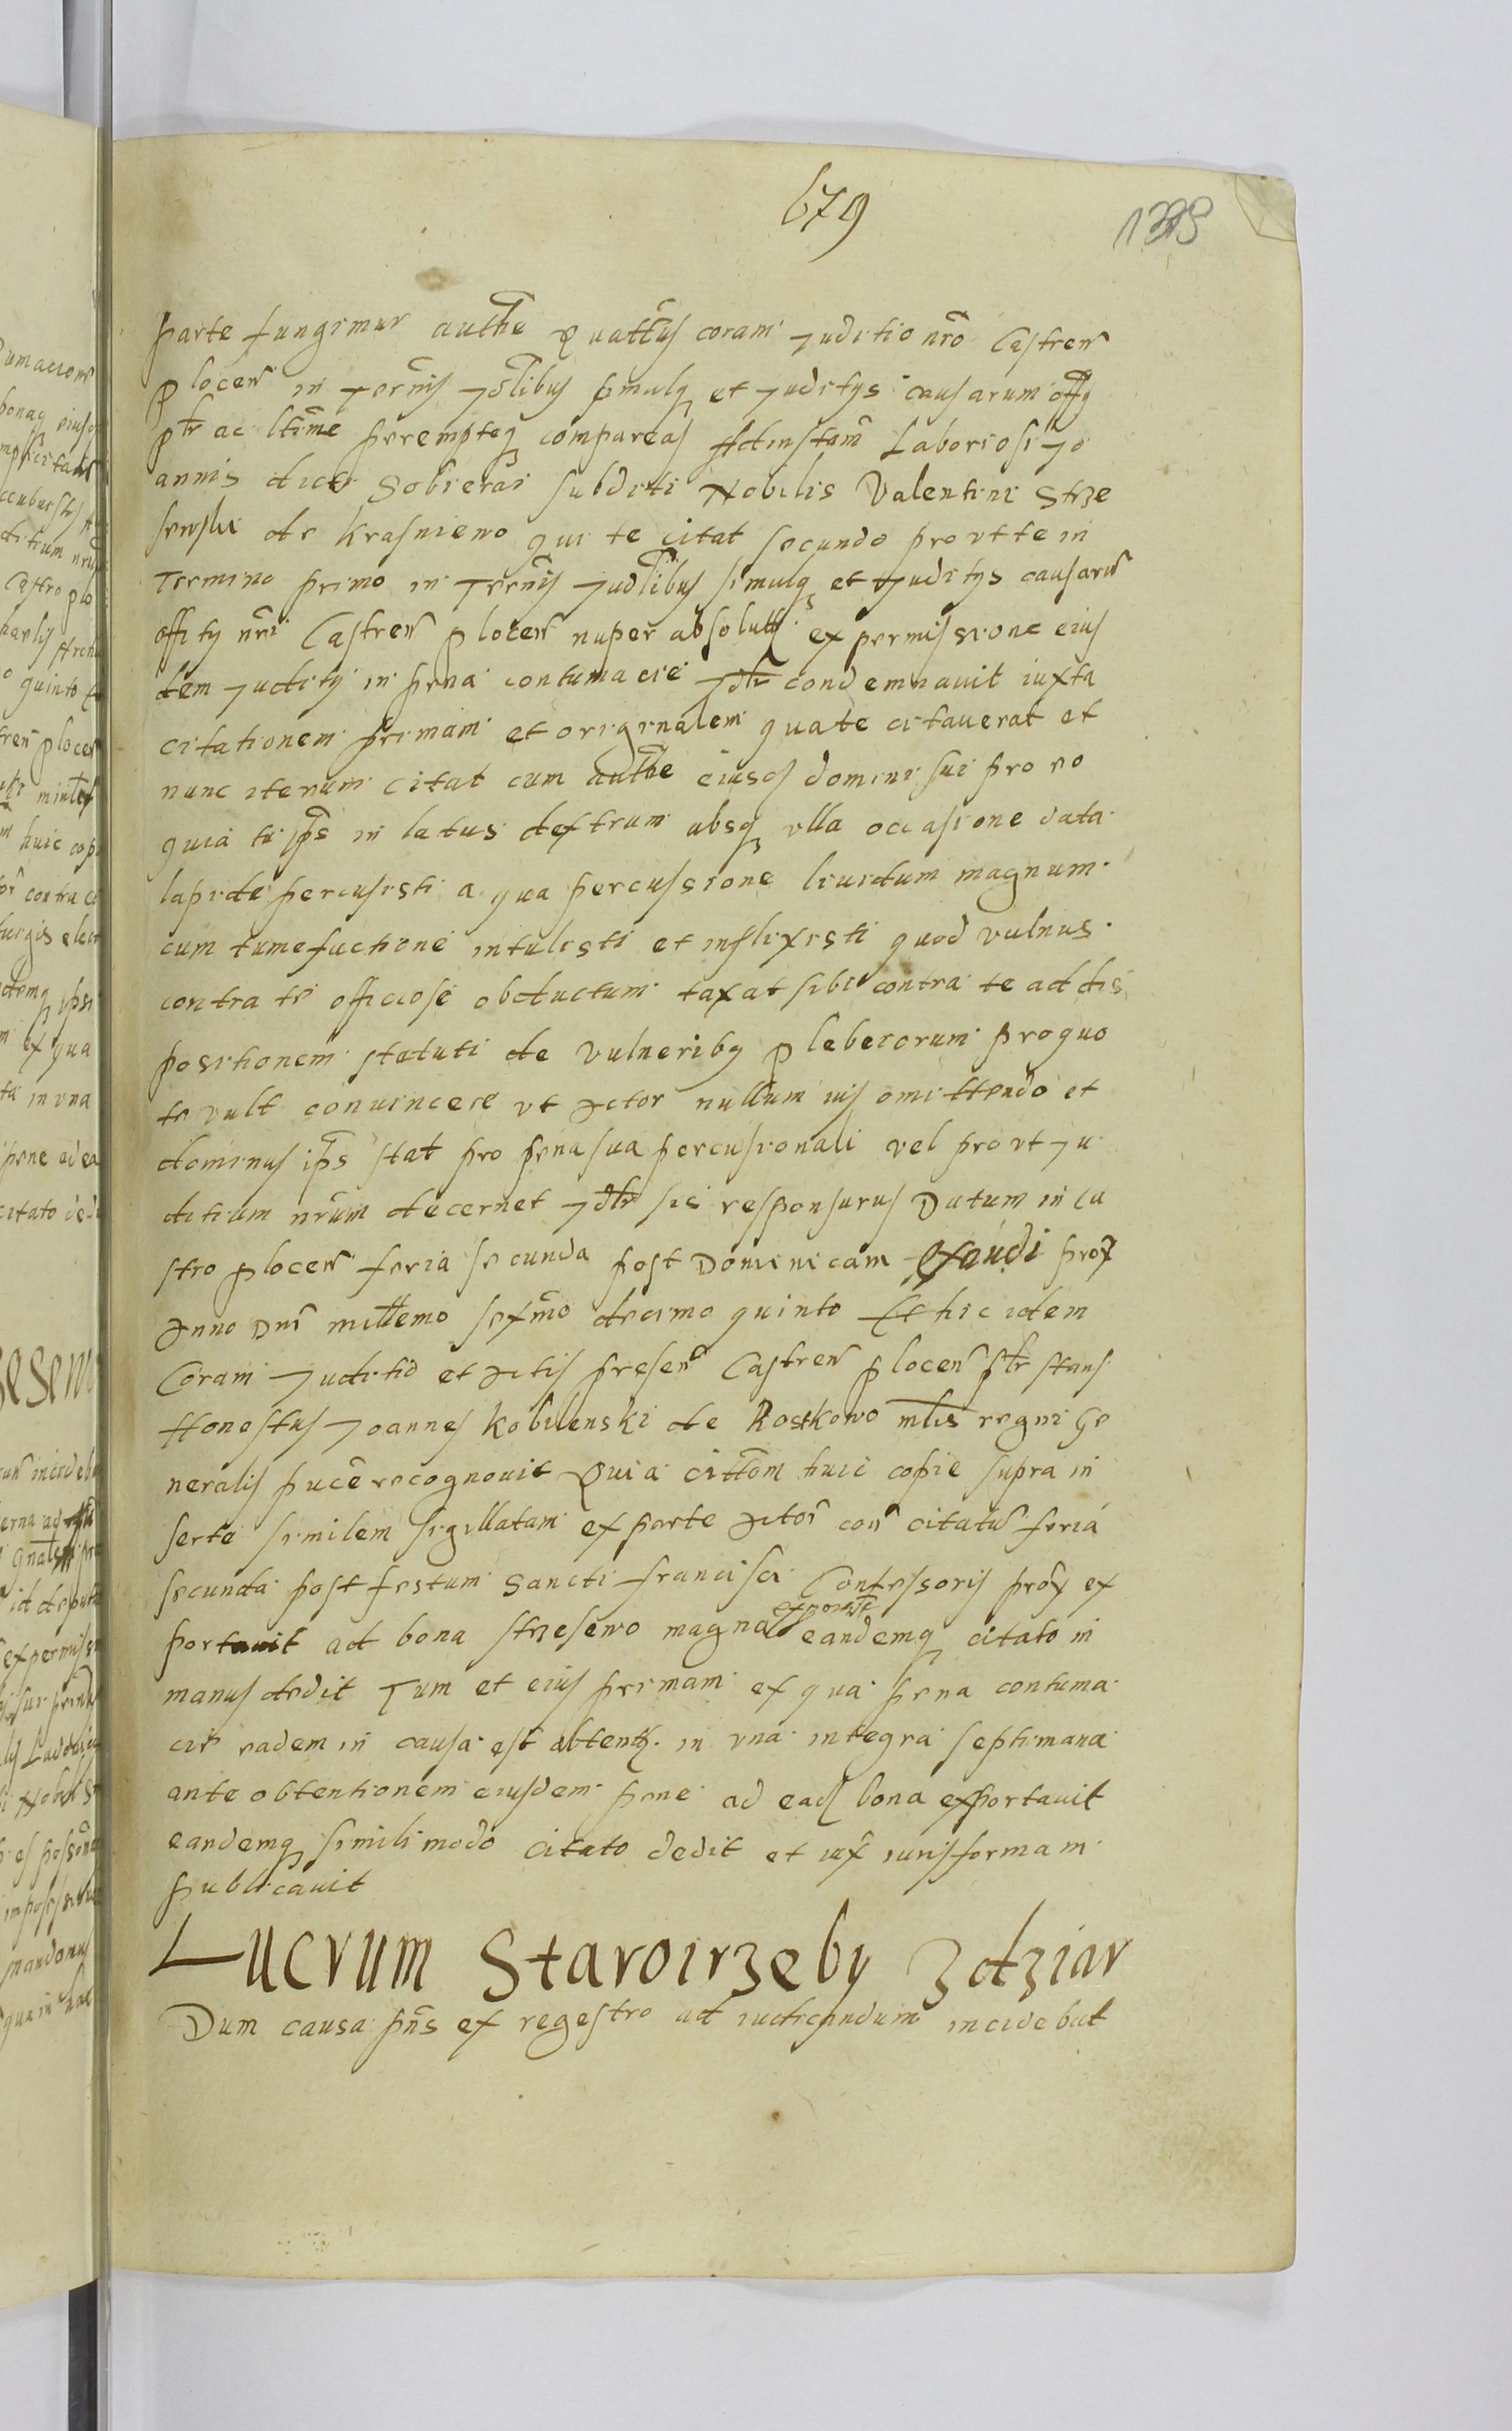 679
parte fungimur authe Quattus coram Juditio nro Castren
plocen in Termis Jdlibus simulq et Juditys causarum offy
ptr ac ltime perempteq compareas Ad instam Laboriosi Jo
annis dicti Sobierai subditi Nobilis Valentini Strze
senski de Krasniewo qui te citat secundo prout te in
Termino primo in Termis Judlibus simulq et Juditys causaru
offity nri Castren plocen nuper absolutis ex permissione eius
dem Judity in pena contumacie Jdtr condemnauit iuxta
citationem primam et originalem qua te citauerat et
nunc iterum citat cum authe eiusd domini sui pro eo
quia tu ips in latus dextrum absq ulla occasione data
lapide percusisti a qua percussione liuidum magnum
cum tumefactione intulisti et inflixisti quod vulnus
contra te officiose obductum taxat sibi contra te ad dis
positionem statuti de vulneribq plebeiorum pro quo
te vult conuincere ut Actor nullum ius omittendo et
dominus ips stat pro pena sua percusionali vel prout Ju
ditium nrum decernet Jdtr sis responsurus Datum in Ca
stro plocen feria secunda post Dominicam Exaudi prox
Anno Dni millemo sexmo decimo quinto Et hic idem
Coram Juditio et Actis presen Castren plocen ptr stans
Honestus Joannes Kobilenski de Rostkowo mlis regni Ge
neralis puce recognouit Quia cittom huic copie supra in
serte similem sigillatam ex parte Actor con citatu feria
secunda post festum Sancti francisci Confessoris prox ex
portauit ad bona strzesewo magna exposuit eandemq citato in
manus dedit Tum et eius primam ex qua pena contuma
cie eadem in causa est obtenta in una integra septimana
ante obtentionem eiusdem pene ad ead bona exportauit
eandemq simili modo citato dedit et iux iuris formam
publicauit
Lucrum Staroirzeby Zdziar
Dum causa pns ex regestro ad iudicandum incidebat